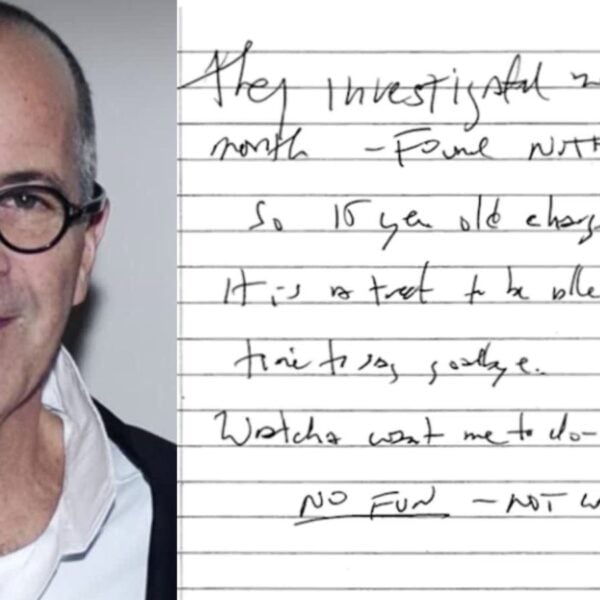 They investigated
month - Found NOTH
So 15 year old charg
It is a treat to be able
time to say goodbye.
Watcha want me to do-
NO FUN - NOT W